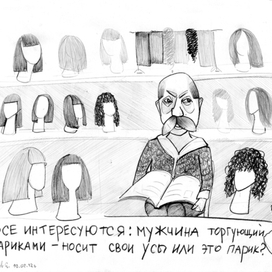 ВСЕ ИНТЕРЕСУЮТСЯ: МУЖЧИНА ТОРГУЮЩИЙ
АРИКАМИ – НОСИТ СВОИ УСЫ ИЛИ ЭТО ПАРИК?